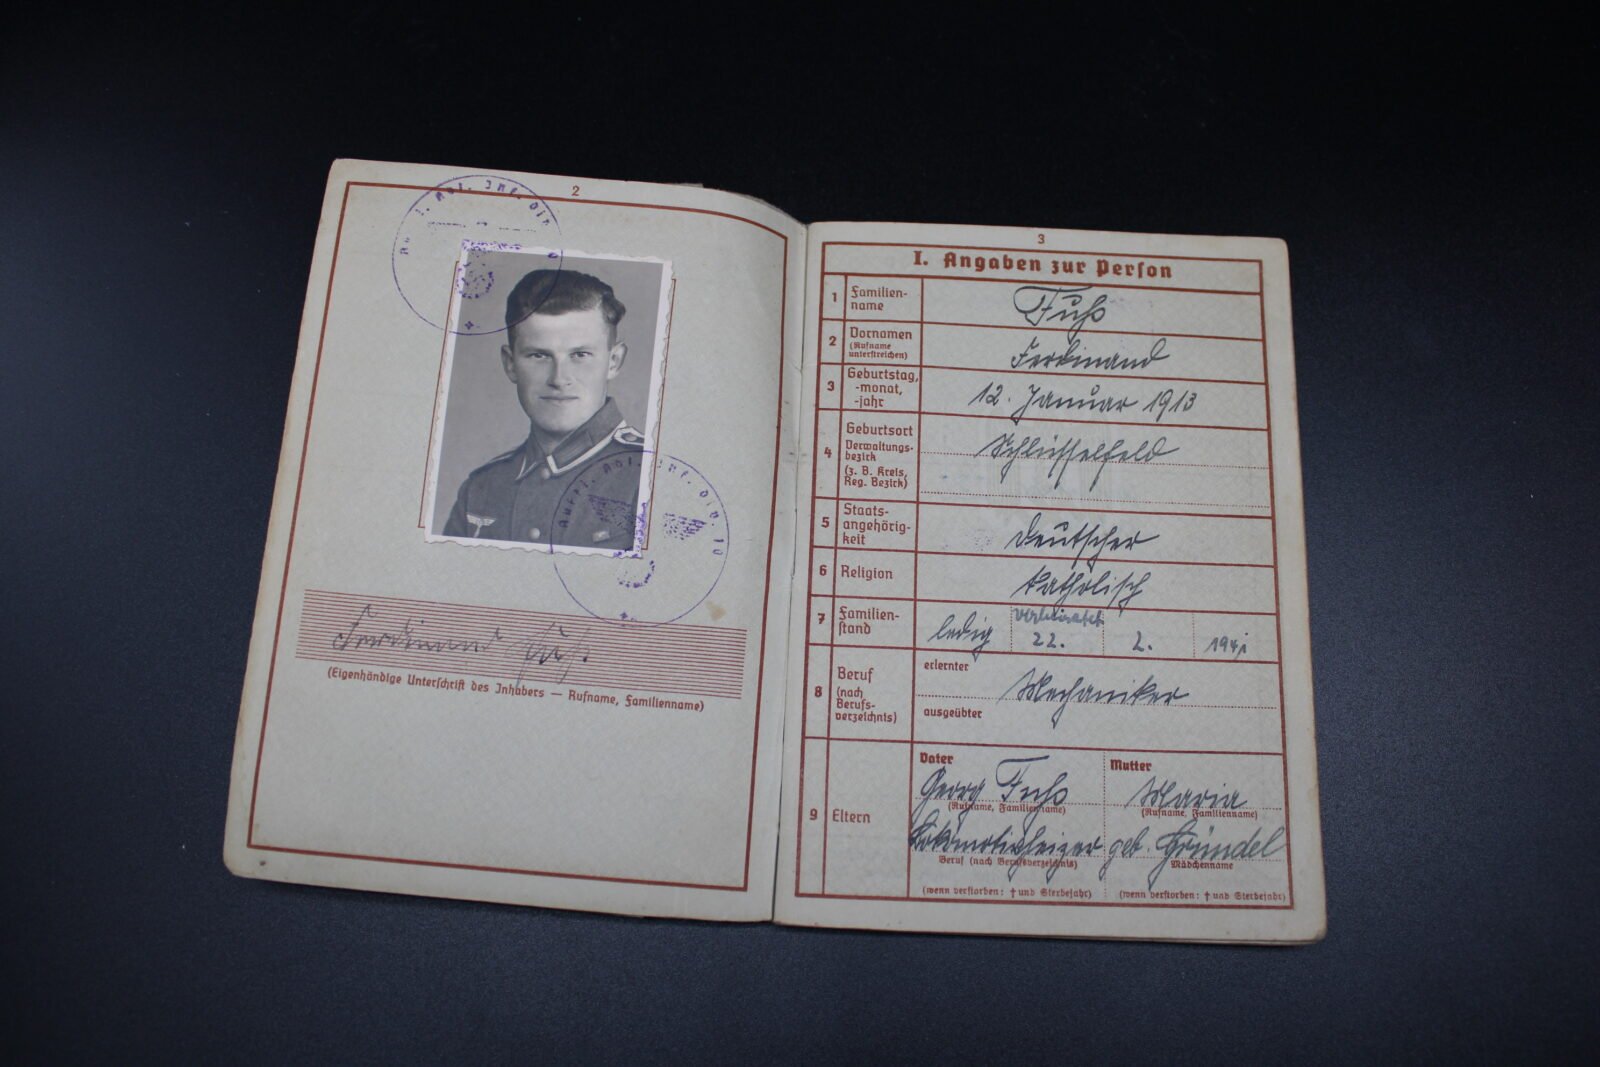 2
Aufkl. Abt. Inf. Div. 10
(Eigenhändige Unterschrift des Inhabers — Rufname, Familienname)
3
I. Angaben zur Person
1 Familien-
name
2 Vornamen
(Rufname
unterstreichen)
Ferdinand
3 Geburtstag,
-monat,
-jahr
12. Januar 1913
4 Geburtsort
Verwaltungs-
bezirk
(z. B. Kreis,
Reg. Bezirk)
Schlüsselfeld
5 Staats-
angehörig-
keit
Deutscher
6 Religion
katholisch
7 Familien-
stand
ledig verheiratet
22. 2. 1941
8 Beruf
(nach
Berufs-
verzeichnis)
erlernter
Mechaniker
ausgeübter
9 Eltern
Vater
Georg
(Rufname, Familienname)
Lokomotivheizer
Beruf (nach Berufsverzeichnis)
(wenn verstorben: † und Sterbejahr)
Mutter
Maria
(Rufname, Familienname)
geb. Gründel
Mädchenname
(wenn verstorben: † und Sterbejahr)